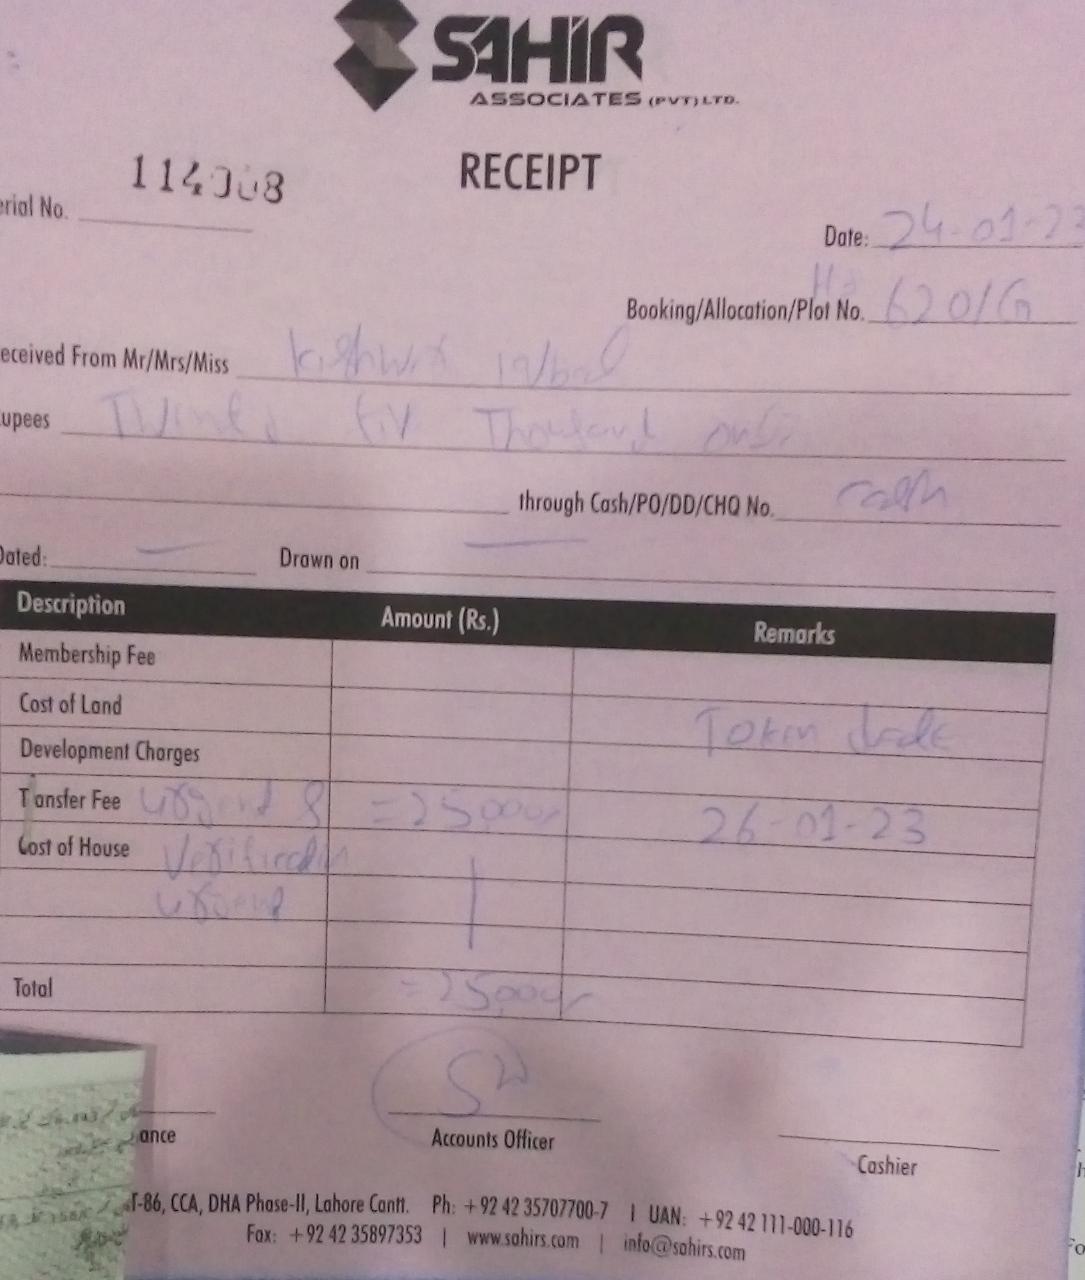 SAHIR
ASSOCIATES (PVT) LTD.
RECEIPT
erial No.
Date: 24-01-23
Booking/Allocation/Plot No. 620/G
eceived From Mr/Mrs/Miss
upees Thousand only
through Cash/PO/DD/CHQ No. cash
Dated: — Drawn on —
Description Amount (Rs.) Remarks
Membership Fee
Cost of Land Token
Development Charges
Transfer Fee urgent & =25,000/- 26-01-23
Cost of House Verification
urgent
Total =25,000/-
ance Accounts Officer
Cashier
T-86, CCA, DHA Phase-II, Lahore Cantt. Ph: +92 42 35707700-7 | UAN: +92 42 111-000-116
Fax: +92 42 35897353 | www.sahirs.com | info@sahirs.com